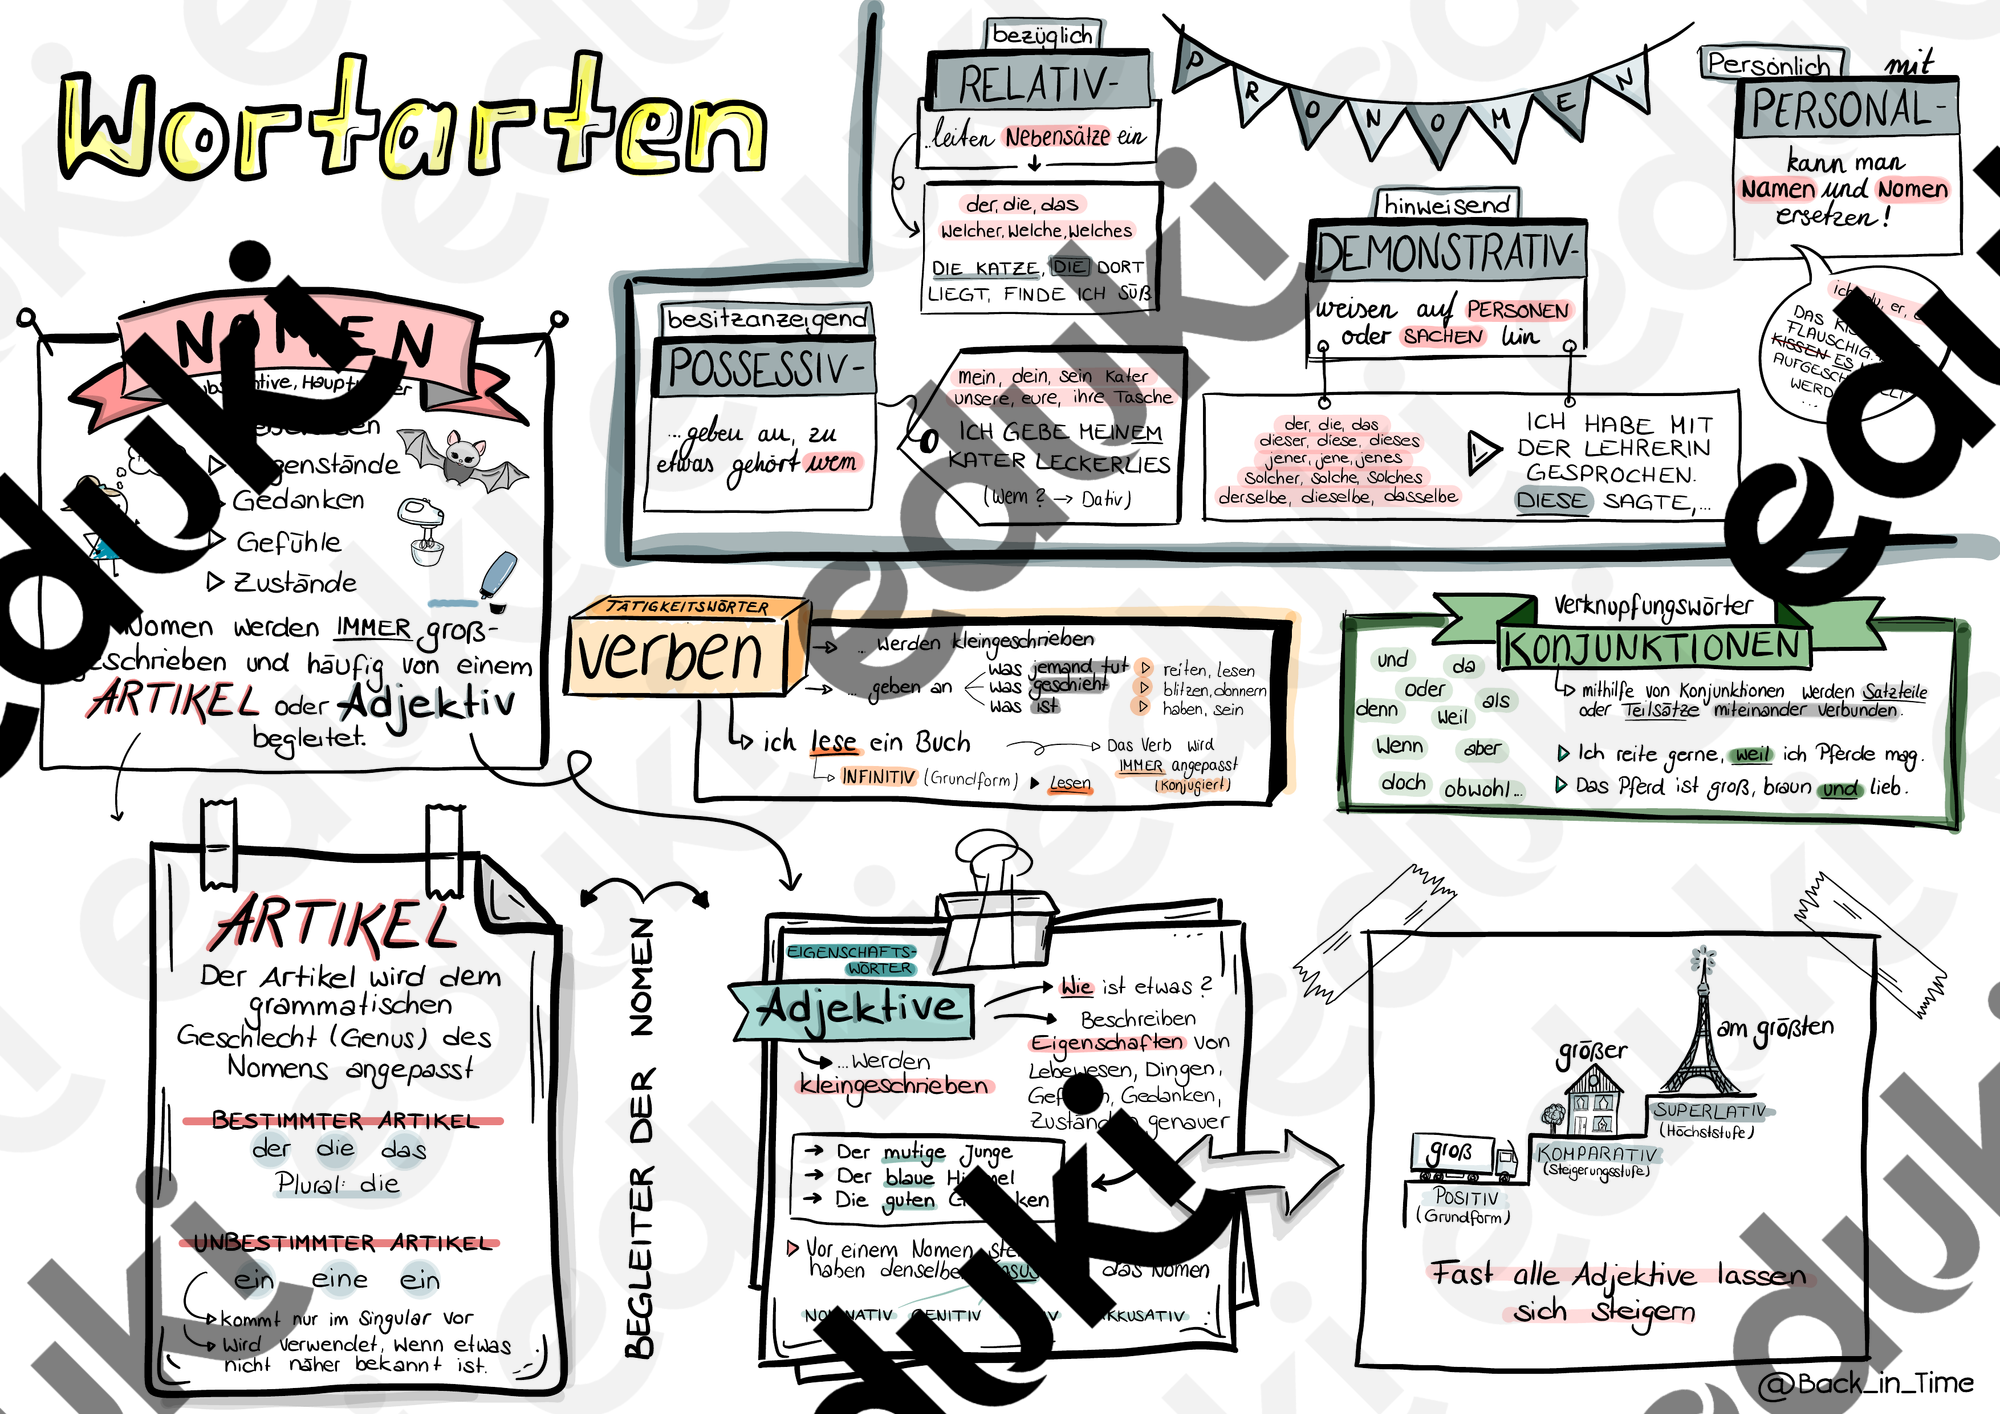 Wortarten
bezüglich
RELATIV-
..leiten Nebensätze ein
der, die, das
Welcher, Welche, Welches
DIE KATZE, DIE DORT
LIEGT, FINDE ICH SÜß
PRONOMEN
Persönlich mit
PERSONAL-
kann man
Namen und Nomen
ersetzen!
ich, du, er,
DAS
FLAUSCHIG.
KISSEN ES
WERD
...
hinweisend
DEMONSTRATIV-
weisen auf PERSONEN
oder SACHEN hin
der, die, das
dieser, diese, dieses
jener, jene, jenes
solcher, solche, solches
derselbe, dieselbe, dasselbe
ICH HABE MIT
DER LEHRERIN
GESPROCHEN.
DIESE SAGTE,...
besitzanzeigend
POSSESSIV-
...geben an, zu
etwas gehört wem
mein, dein, sein Kater
unsere, eure, ihre Tasche
ICH GEBE MEINEM
KATER LECKERLIES
(Wem? → Dativ)
NOMEN
Gedanken
Gefühle
Zustände
Nomen werden IMMER groß-
geschrieben und häufig von einem
ARTIKEL oder Adjektiv
begleitet.
TÄTIGKEITSWÖRTER
verben
... werden kleingeschrieben
... geben an
was jemand tut
was geschieht
was ist
reiten, lesen
blitzen, donnern
haben, sein
ich lese ein Buch
INFINITIV (Grundform) ▶ Lesen
Das Verb wird
IMMER angepasst
(Konjugiert)
Verknüpfungswörter
KONJUNKTIONEN
und da
oder als
denn weil
Wenn aber
doch obwohl...
mithilfe von Konjunktionen werden Satzteile
oder Teilsätze miteinander verbunden.
Ich reite gerne, weil ich Pferde mag.
Das Pferd ist groß, braun und lieb.
ARTIKEL
Der Artikel wird dem
grammatischen
Geschlecht (Genus) des
Nomens angepasst
BESTIMMTER ARTIKEL
der die das
Plural: die
UNBESTIMMTER ARTIKEL
ein eine ein
kommt nur im Singular vor
Wird verwendet, wenn etwas
nicht näher bekannt ist.
BEGLEITER DER NOMEN
EIGENSCHAFTS-
WÖRTER
Adjektive
...werden
kleingeschrieben
Wie ist etwas?
Beschreiben
Eigenschaften von
Lebewesen, Dingen,
Gedanken,
genauer
→ Der mutige Junge
→ Der blaue Himmel
→ Die guten
Vor einem Nomen
haben denselben Kasus das Nomen
NOMINATIV GENITIV AKKUSATIV
groß
POSITIV
(Grundform)
größer
KOMPARATIV
(Steigerungsstufe)
am größten
SUPERLATIV
(Höchststufe)
Fast alle Adjektive lassen
sich steigern
@Back_in_Time
eduki
eduki
eduki
eduki